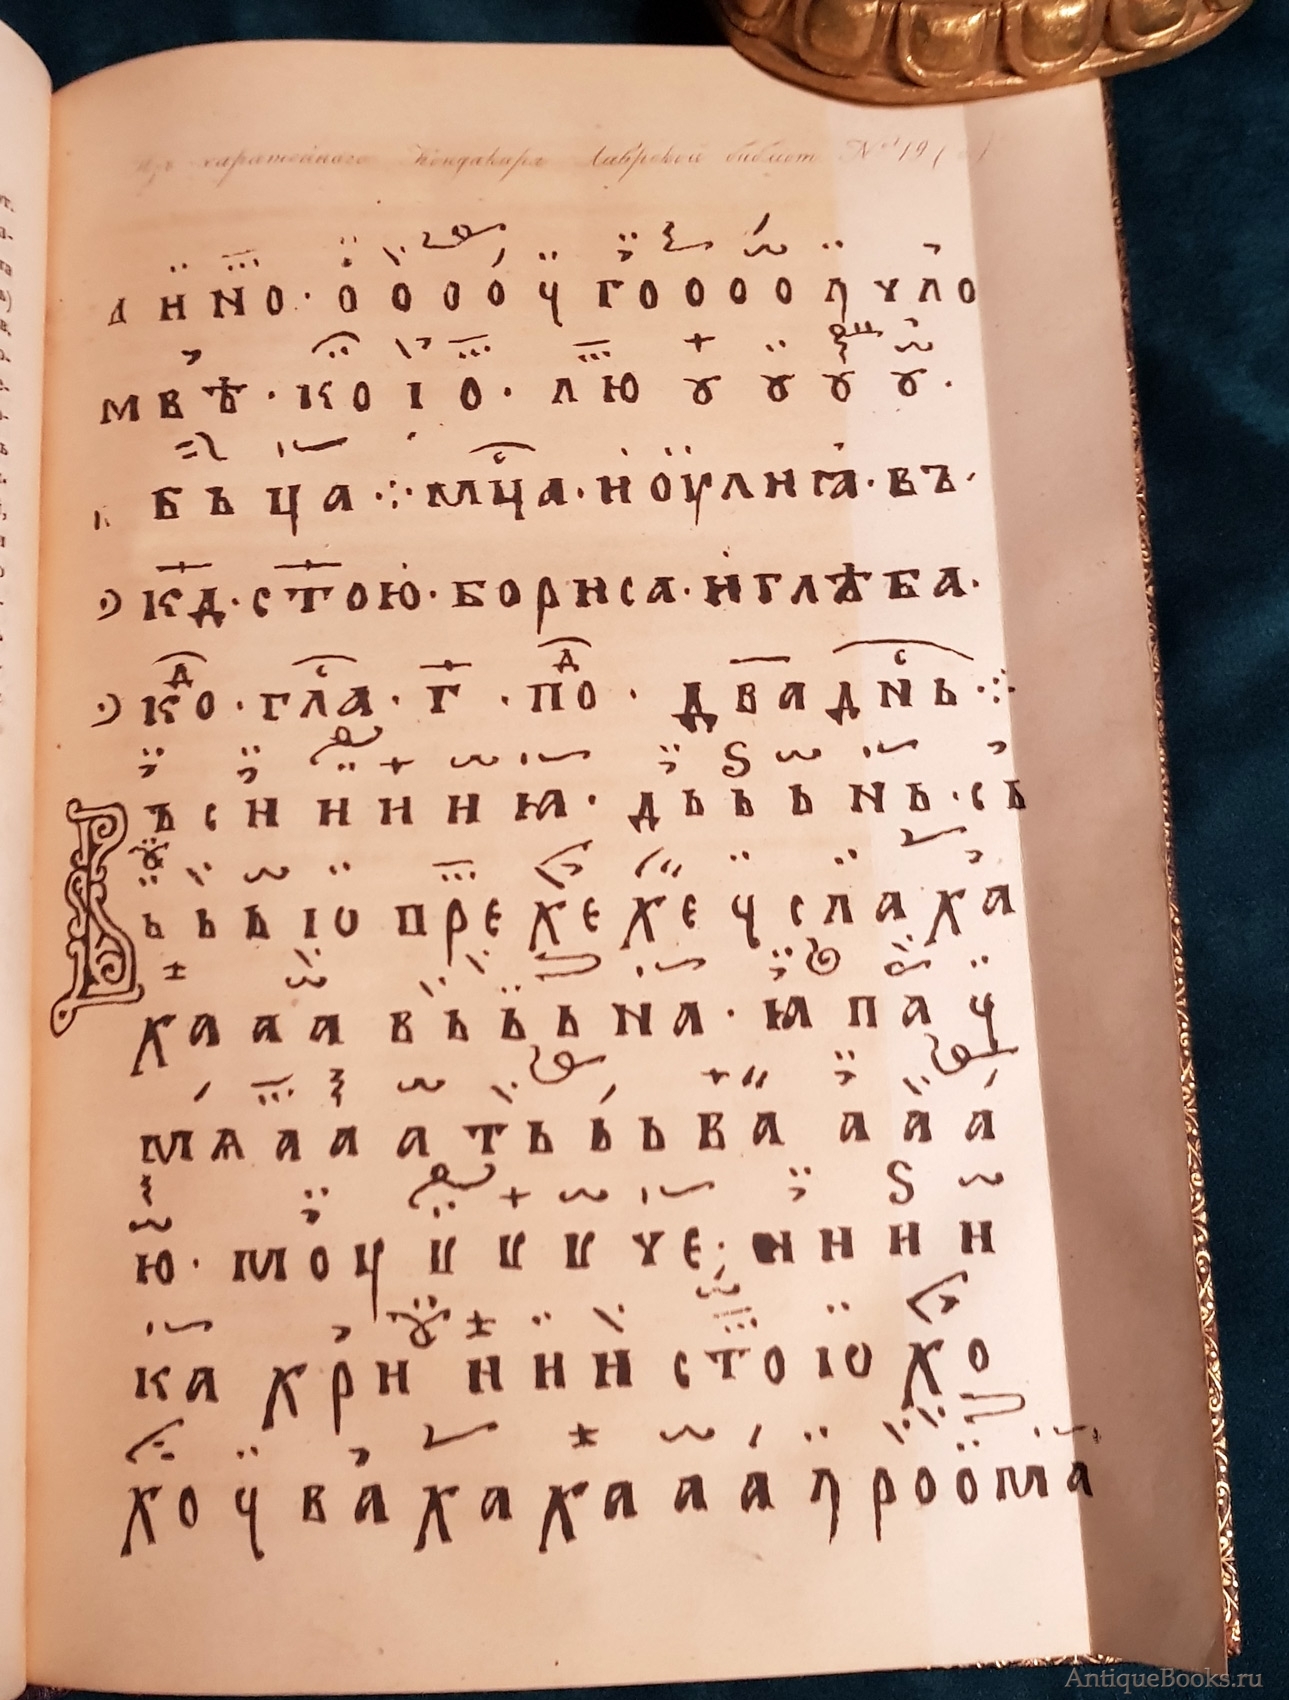 Изъ харатейнаго Кондакаря Лаврской библиот. № 19
Д Н Ѡ О · О О О О Ч Г О О О О Ӆ Ү Л О
М В Ѣ · К О І О · Л Ю Ȣ Ȣ Ȣ Ȣ ·
Б Ь Ц А · : · М Ц А · Н О У Л Н Ꙗ · В Ъ ·
К Д · С Т О Ю · Б О Р Н С А · Н Г Л Ѣ Б А ·
К О · Г Л А · Г · П О · Д В А Д N Ь · : ·
В Ъ С Н Н Н Н Ꙗ · Д Ь Ь Ь N Ь · С Ь
Ь Ь Ь І О П Р Е Х Е Х Е Ч С Л А Х А
Х А А А В Ь Ь Ь N А · Ꙗ П А Ч
М Ѧ А А А Т Ь Ь Ь В А А А А
Ю · М О У Ц Ц Ц Ү Е · Н Н Н Н
К А Х Р Н Н Н Н С Т О І О Х О
Х О Ч В А Х А Х А А А Ӆ Р О О М А
AntiqueBooks.ru